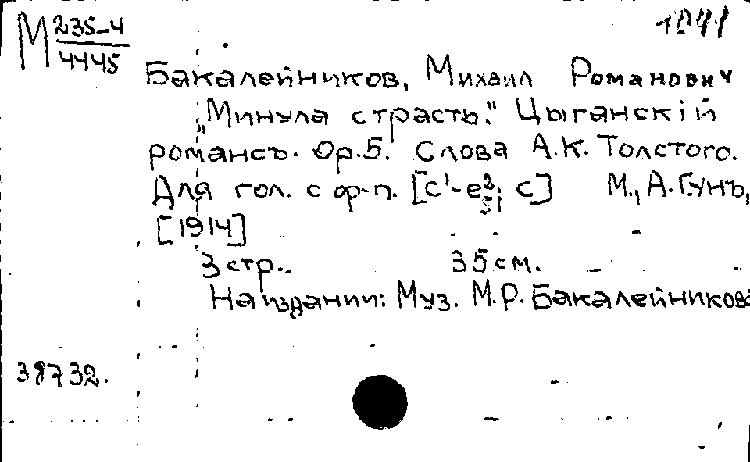 М 235-4
4445
Бакалейников, Михаил Романович
„Минула страсть." Цыганскiй
романсъ. Ор.5. Слова А.К. Толстого.
Для гол. с ф-п. [c¹-e²; c] М., А. Гунъ,
[1914]
3 стр. 35 см.
На издании: Муз. М.Р. Бакалейникова
38732.